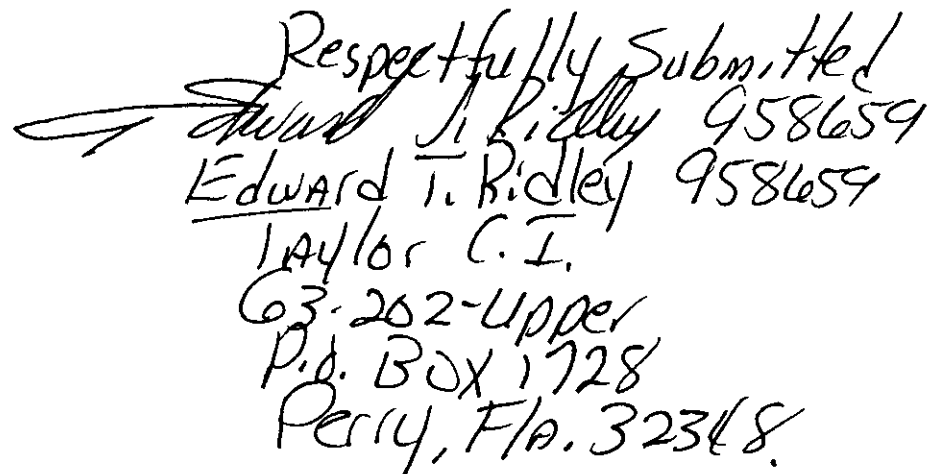 Respectfully Submitted
Edward T. Ridley 958659
Edward T. Ridley 958659
Taylor C.I.
G3-202-Upper
P.O. BOX 1728
Perry, Fla. 32348.